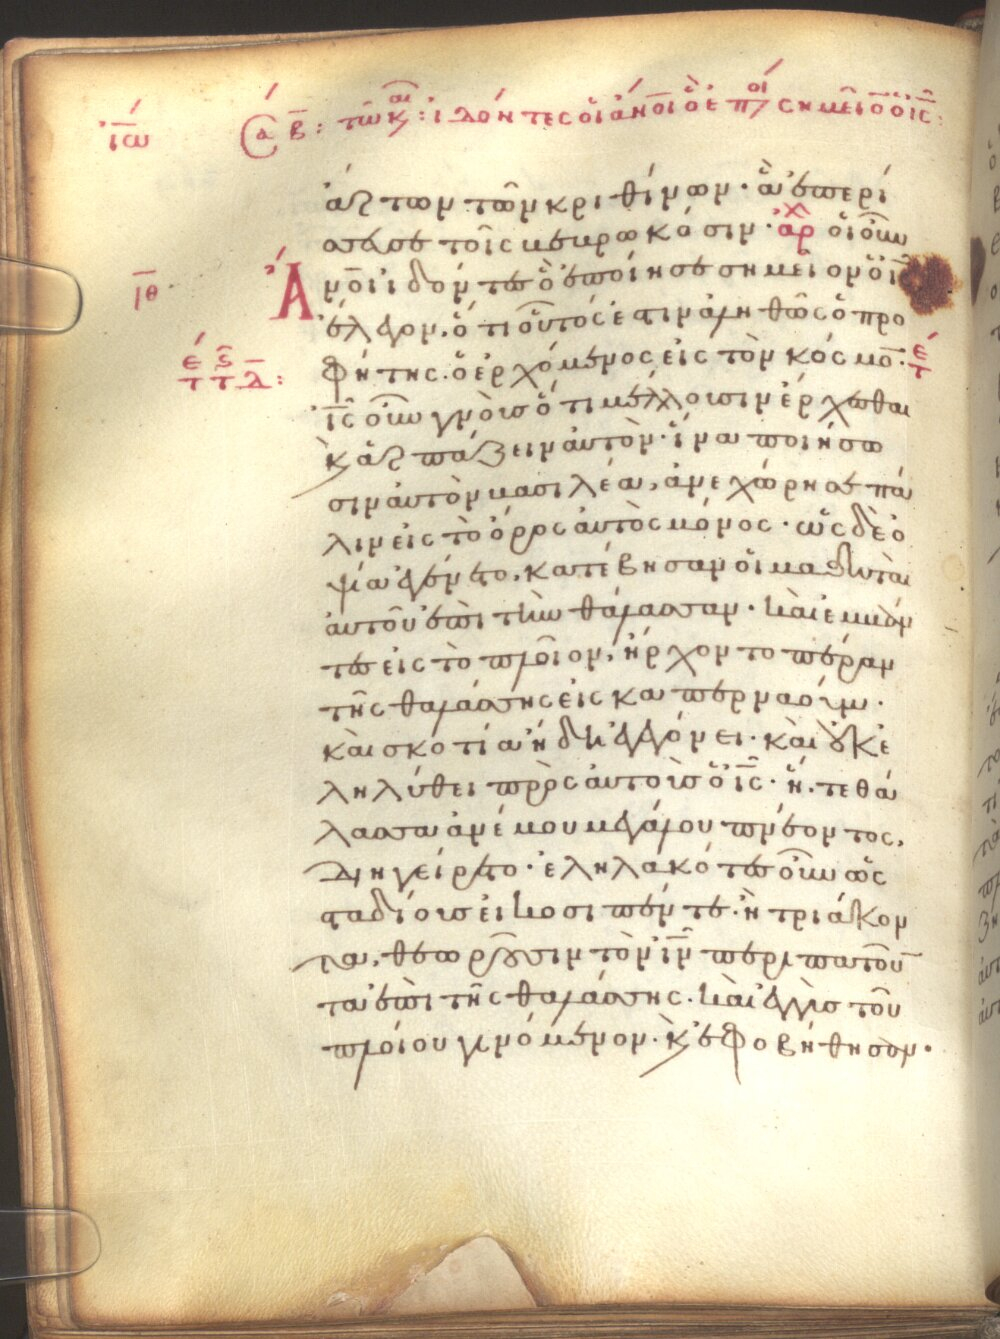 ἰω Σα β: τῶ καιρ: ἰδόντες οἱ ἄνοι ὃ ἐποί σημεῖον ὁ ις:
άρτων τῶν κριθίνων· ἃ ἐπερί
σσευσε τοῖς βεβρωκόσιν· αρχ οἱ οὖν
ιθ
ἄνοι ἰδόντες ὃ ἐποίησε σημεῖον ὁ ις
ἔλεγον, ὅτι οὗτός ἐστιν ἀληθῶς ὁ προ
φήτης. ὁ ἐρχόμενος εἰς τὸν κόσμο·
ις οὖν γνοὺς ὅτι μέλλουσιν ἔρχεσθαι
κ ἁρπάζειν αὐτὸν· ἵνα ποιήσω
σιν αὐτὸν βασιλέα, ἀνεχώρησε πά
λιν εἰς τὸ ὄρος αὐτὸς μόνος· ὡς δὲ ὀ
ψία ἐγένετο, κατέβησαν οἱ μαθηταὶ
αὐτοῦ ἐπὶ τὴν θάλασσαν· καὶ ἐμβάν
τες εἰς τὸ πλοῖον, ἤρχοντο πέραν
τῆς θαλάσσης εἰς καπερναούμ·
καὶ σκοτία ἤδη ἐγεγόνει· καὶ οὐκ ἐ
ληλύθει πρὸς αὐτοὺς ὁ ις· ἥ τε θά
λασσα ἀνέμου μεγάλου πνέοντος,
διηγείρετο· ἐληλακότες οὖν ὡς
σταδίους εἰκοσι πέντε· ἢ τριάκον
τα, θεωροῦσιν τὸν ιν περιπατοῦν
τα ἐπὶ τῆς θαλάσσης· καὶ ἐγγὺς τοῦ
πλοίου γινόμενον· κ ἐφοβήθησαν·